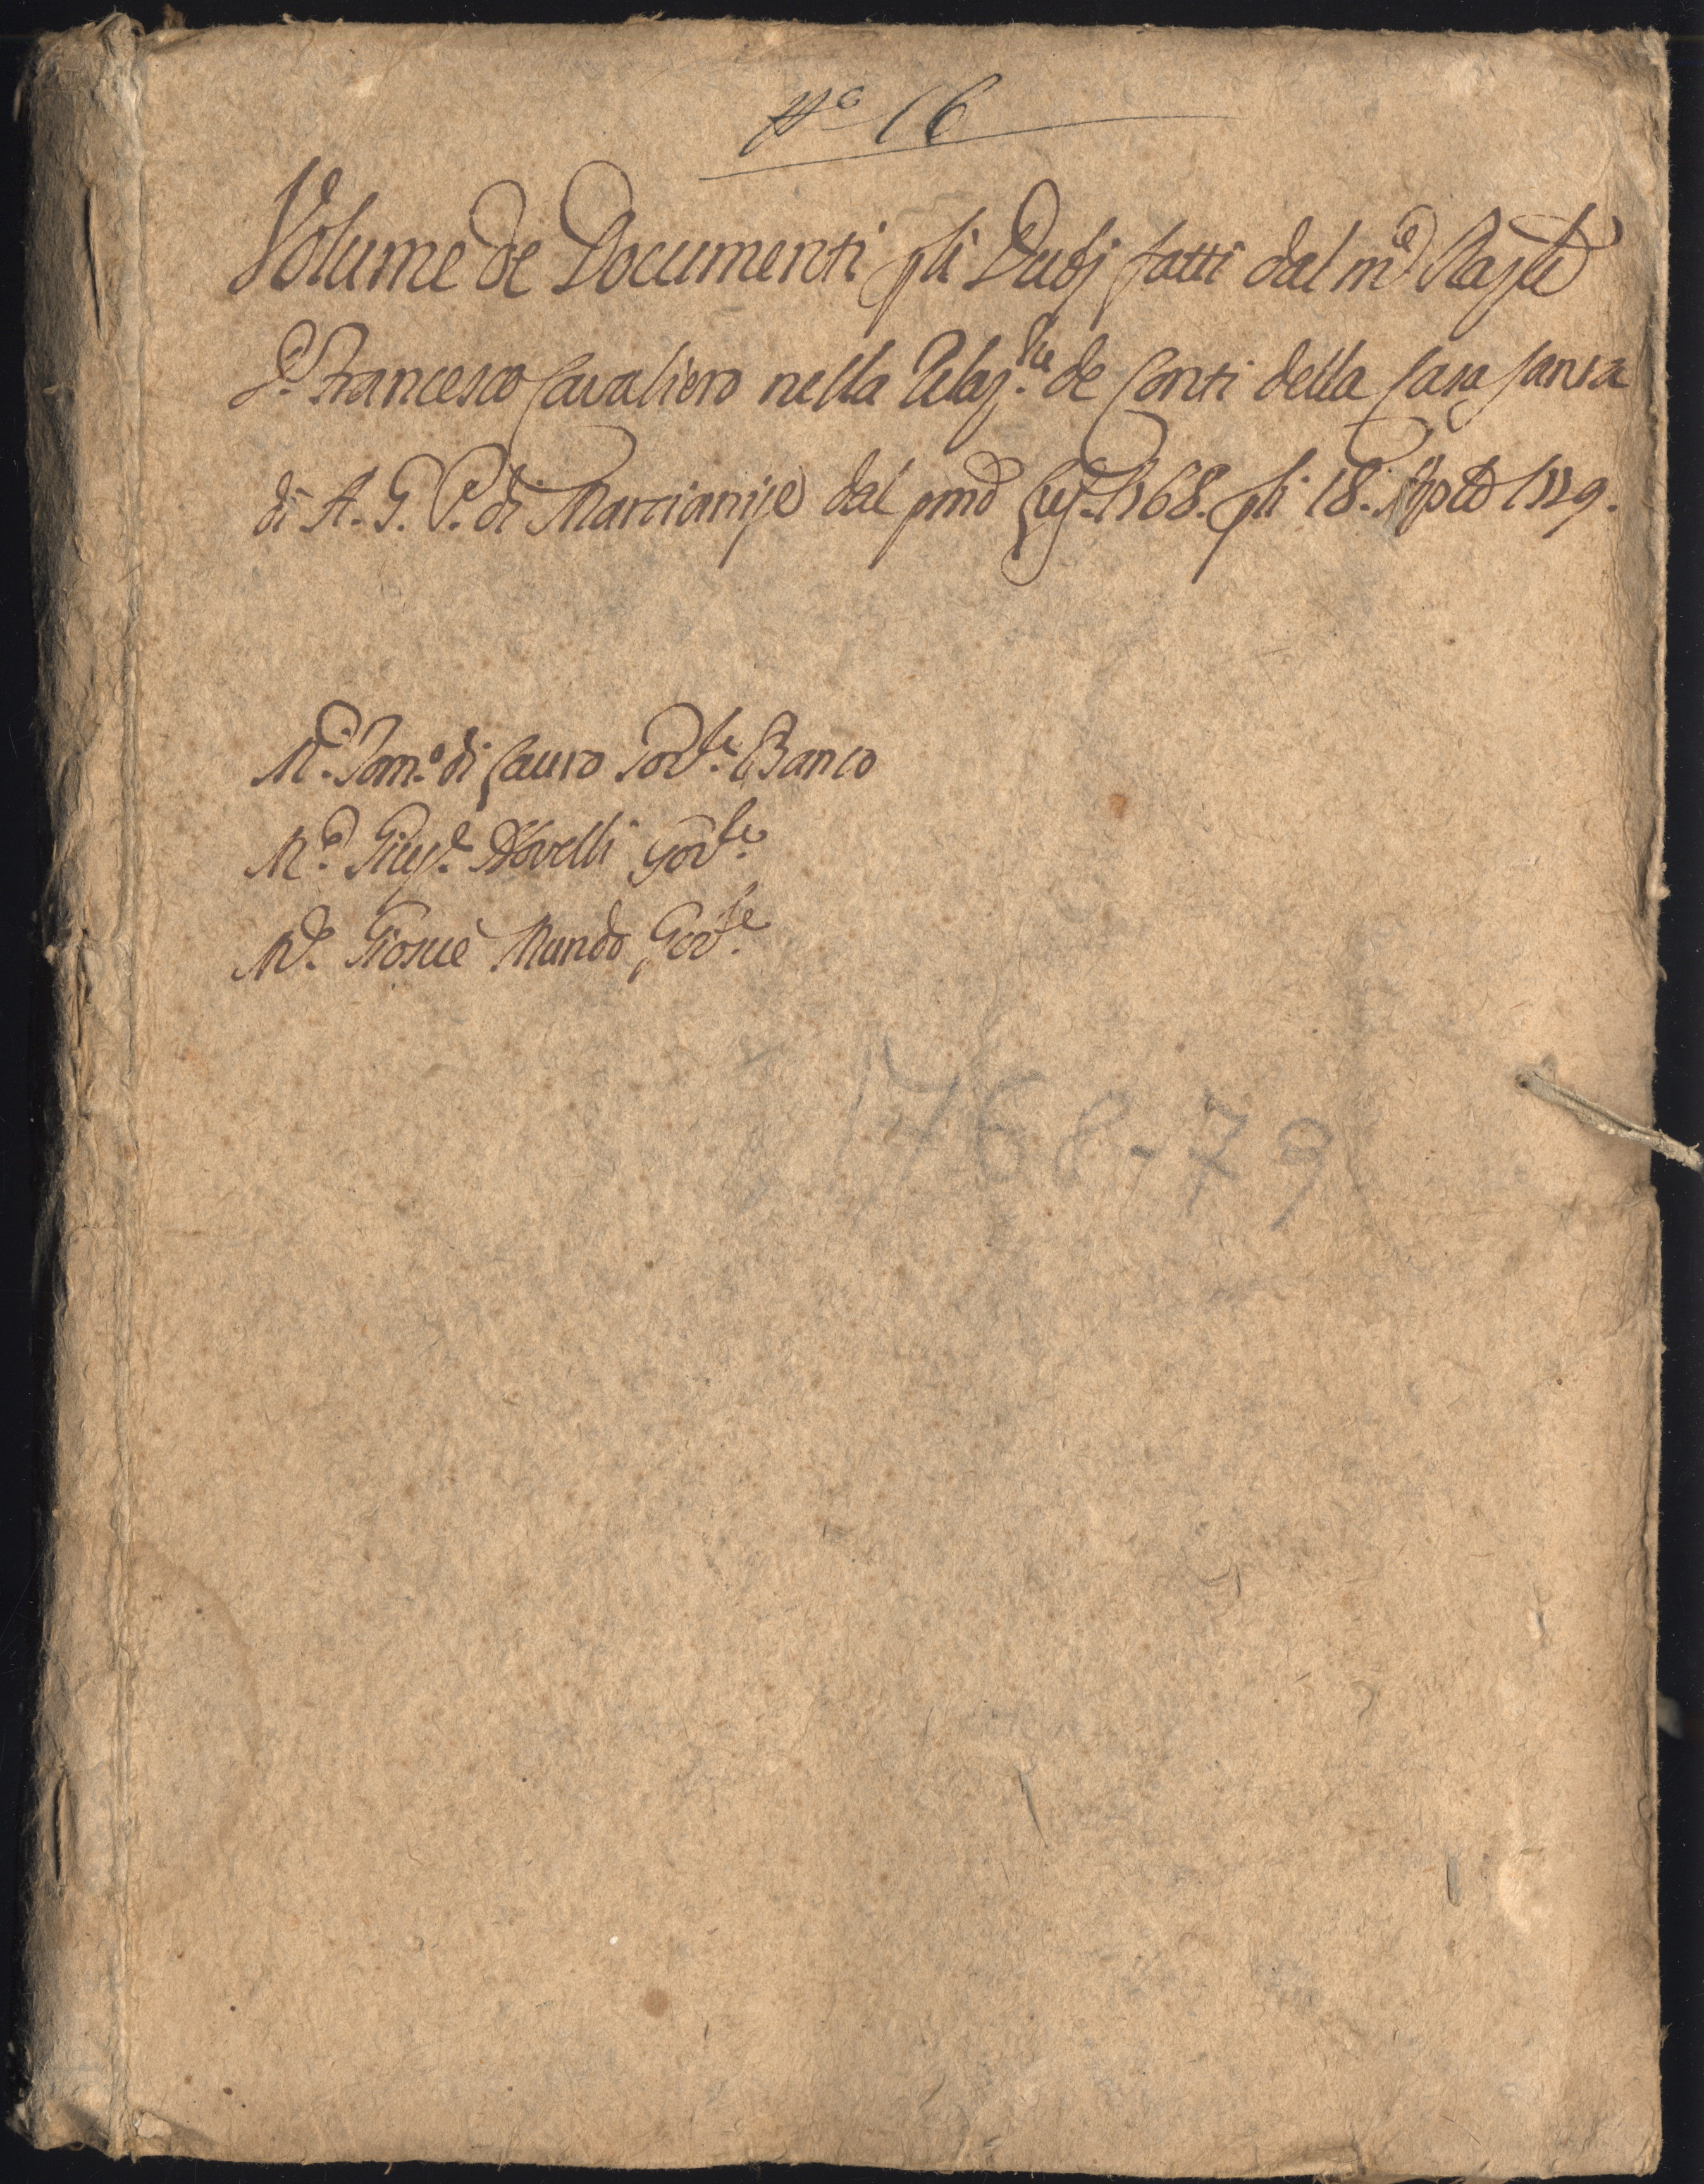 N.º 16
Volume de Documenti p li Dubj fatti dal m.co Raz.le
D. Francesco Cavaliero nella Relaz.ne de Conti della Casa Santa
di A. G. P. di Marcianise dal pmo 1768. p li 18. Agosto 1779.
M.co Dom.o di Lauro Gov.re Banco
M.co Gius.e Novelli Gov.re
M.co Giosuè Mundo Gov.re
1768-79